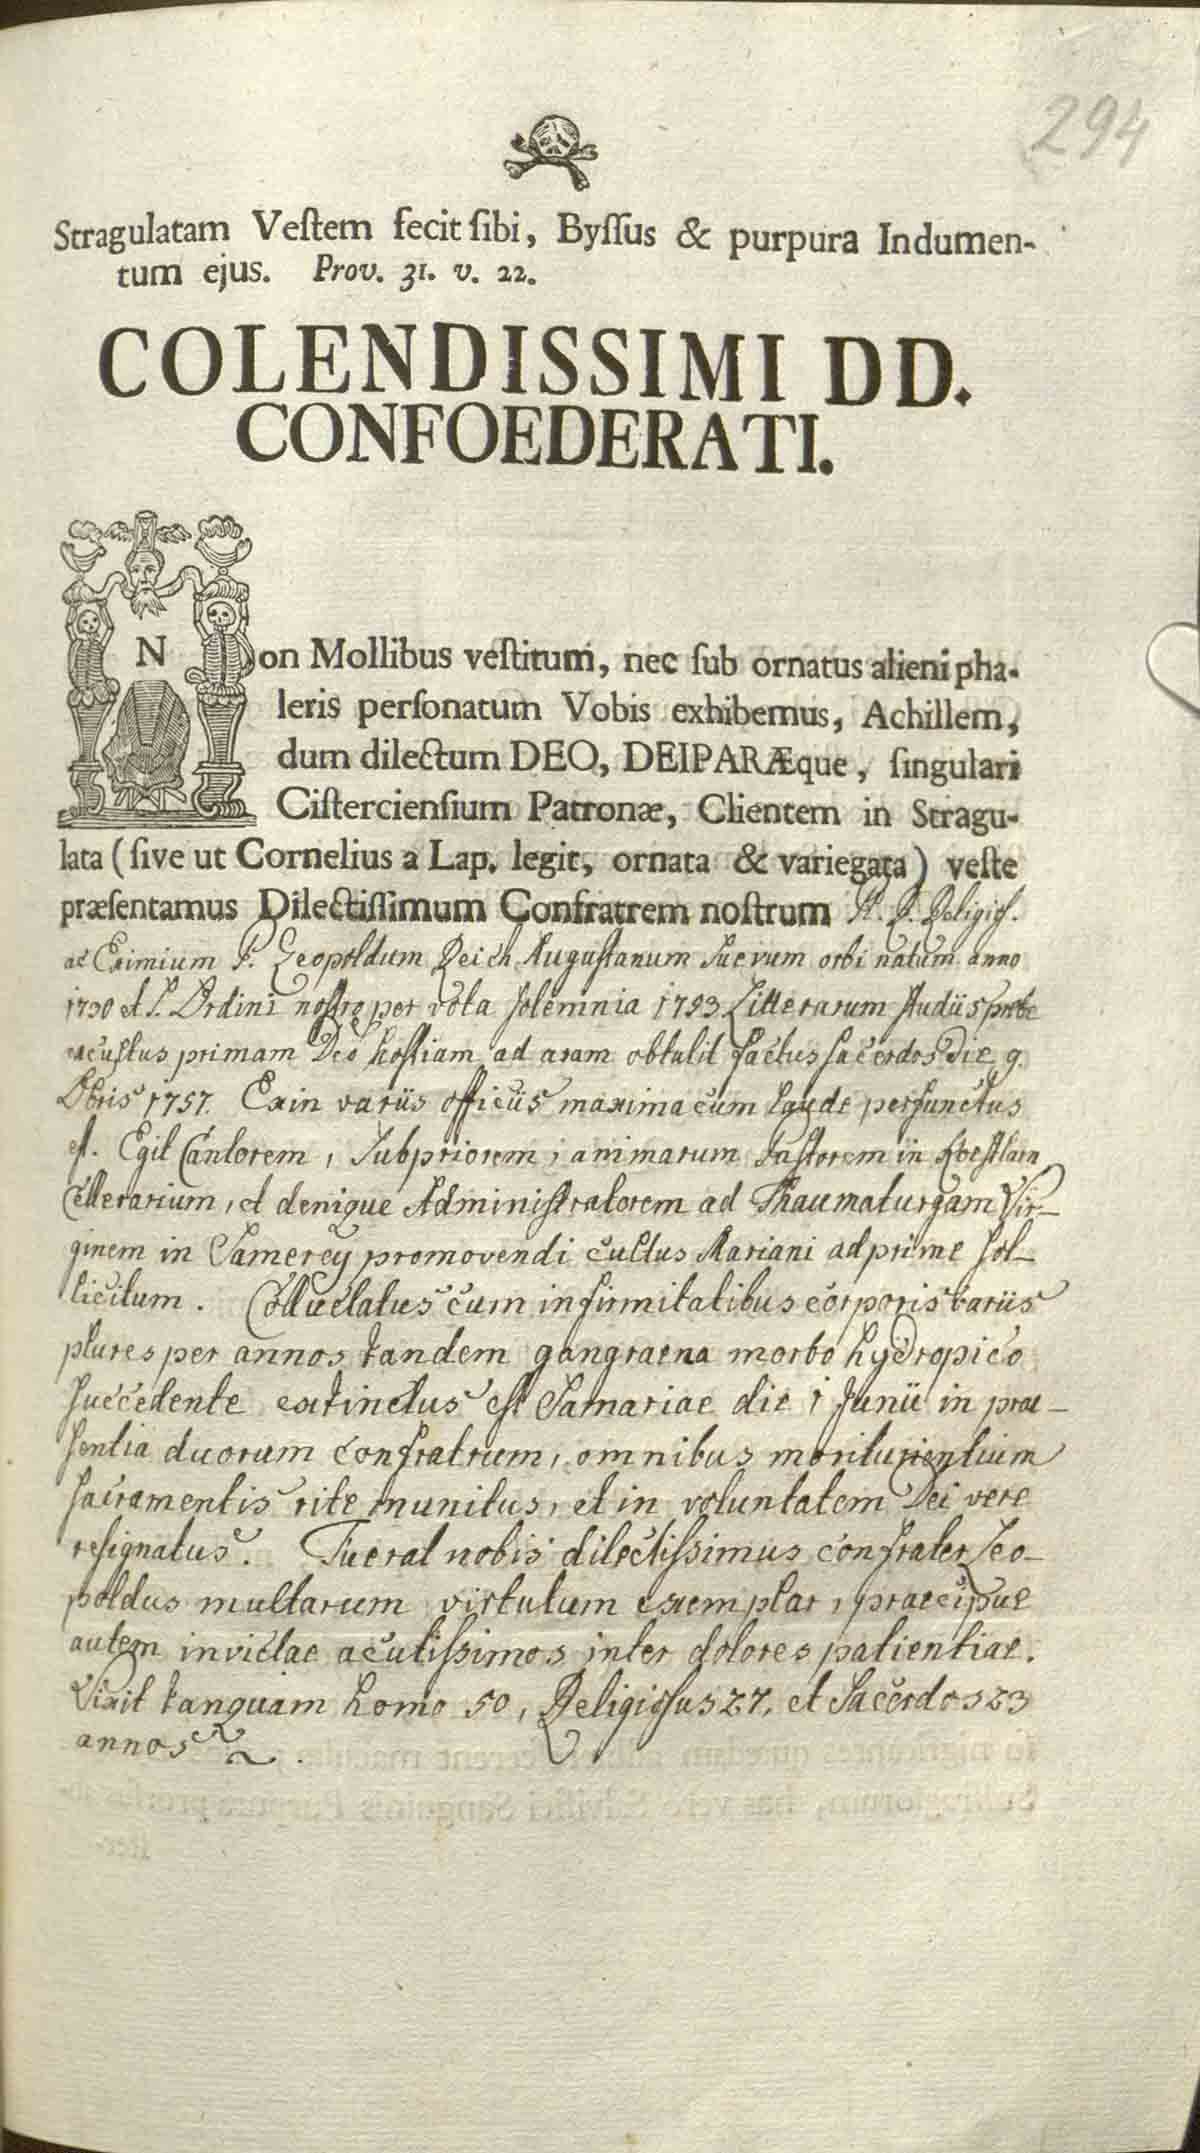 294
Stragulatam Veſtem fecit ſibi, Byſſus & purpura Indumen-
tum ejus. Prov. 31. v. 22.
COLENDISSIMI DD.
CONFOEDERATI.
Non Mollibus veſtitum, nec ſub ornatus alieni pha-
leris perſonatum Vobis exhibemus, Achillem,
dum dilectum DEO, DEIPARÆque, ſingulari
Ciſtercienſium Patronæ, Clientem in Stragu-
lata (ſive ut Cornelius a Lap. legit, ornata & variegata) veſte
præſentamus Dilectiſſimum Confratrem noſtrum A. R. Religioſ.
ac Eximium P. Leopoldum Reich Auguſtanum Suevum orbi natum anno
1730 et S. Ordini noſtro per vota ſolemnia 1753 Litterarum ſtudiis probe
excultus primam Deo hoſtiam ad aram obtulit factus ſacerdos die 9.
8bris 1757. Exin variis officiis maxima cum laude perfunctus
eſt. Egit Cantorem, Subpriorem, animarum Paſtorem in
Cellerarium, et denique Adminiſtratorem ad Thaumaturgam Vir-
ginem in Samerey promovendi cultus Mariani adprime ſol-
licitum. Colluctatus cum infirmitatibus corporis variis
plures per annos tandem gangraena morbo hydropico
ſuccedente extinctus eſt Samariae die 1 Junii in prae-
ſentia duorum confratrum, omnibus moriturientium
ſacramentis rite munitus, et in voluntatem Dei vere
reſignatus. Fuerat nobis dilectiſſimus confrater Leo-
poldus multarum virtutum exemplar, praecipue
autem invictae acutiſſimos inter dolores patientiae.
Vixit tanquam homo 50, Religioſus 27. et Sacerdos 23
annos.